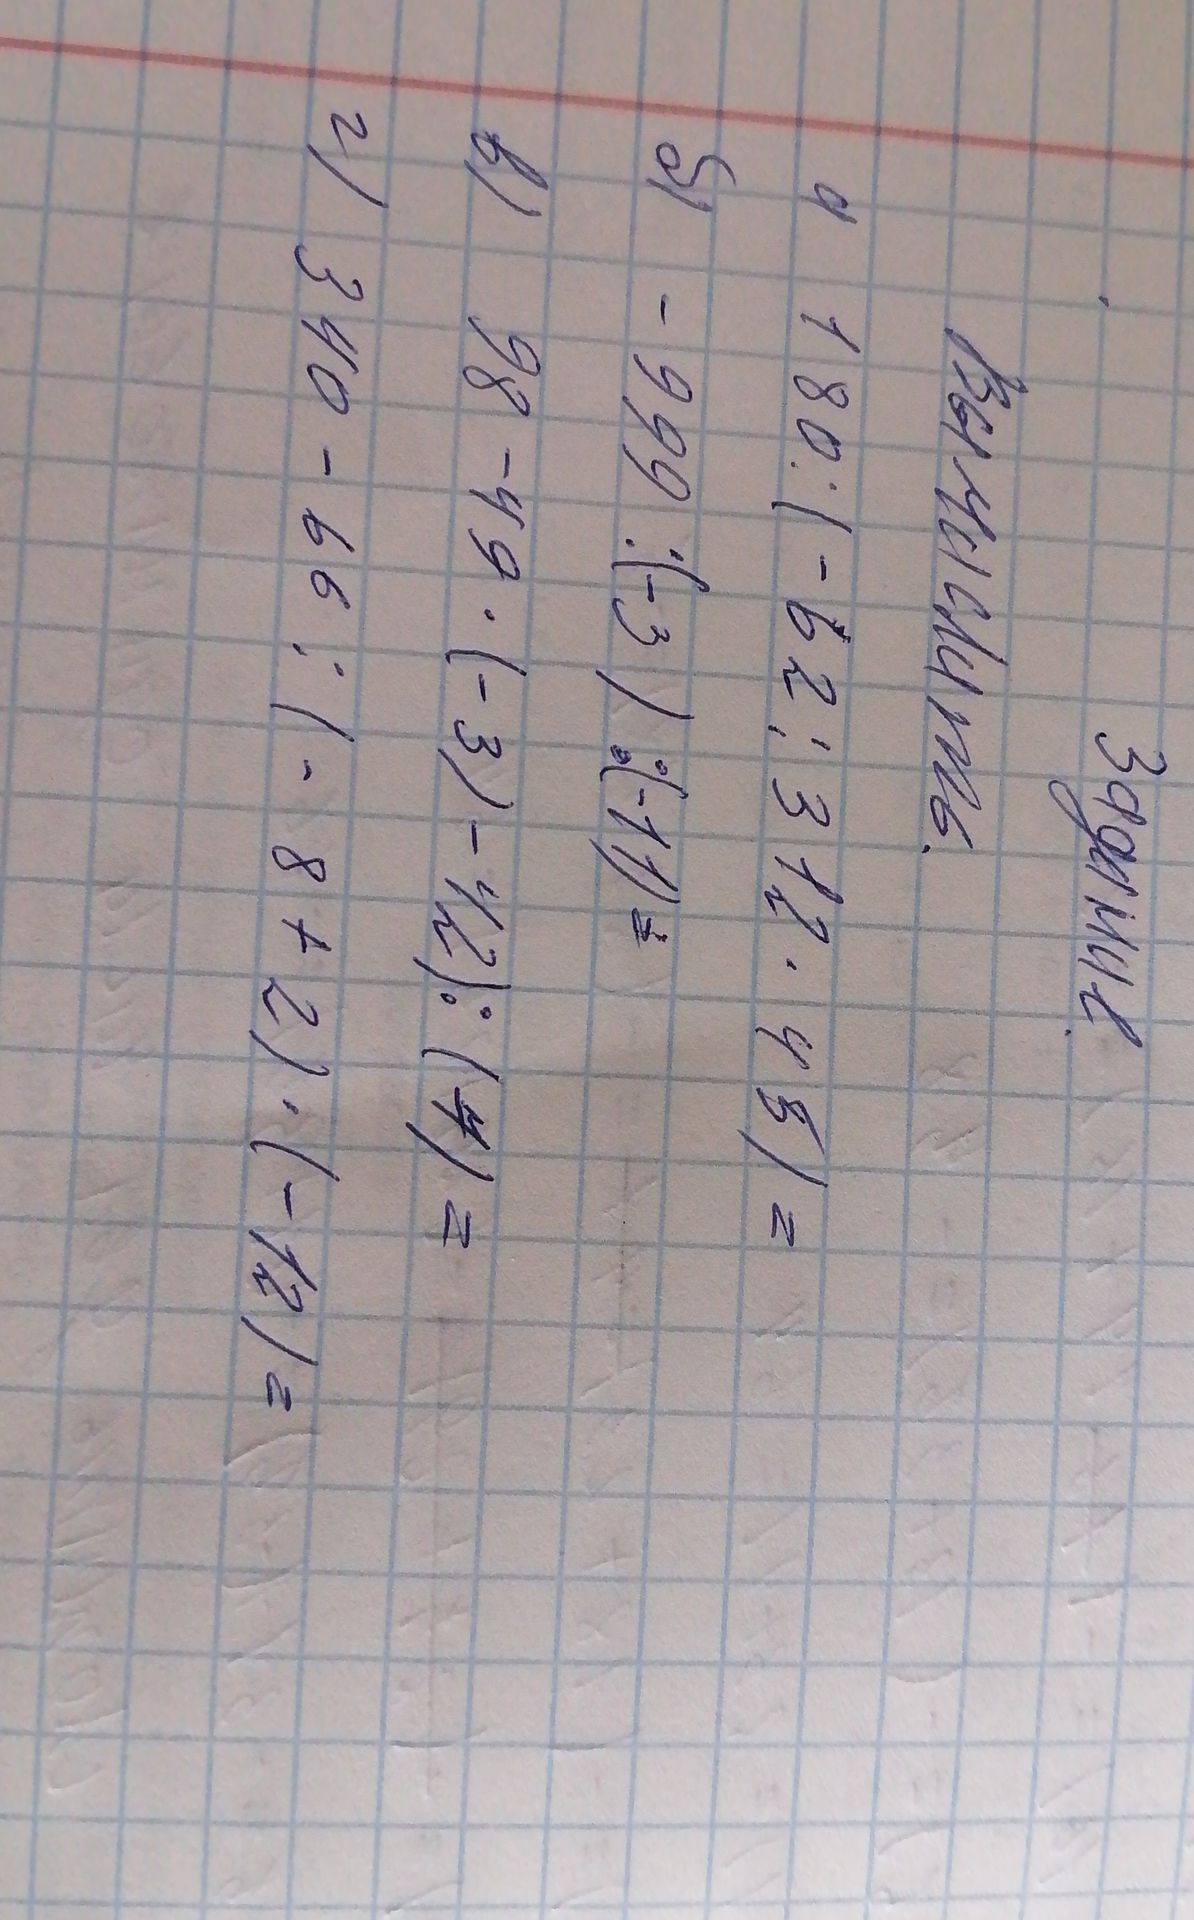 Задание.
Вычислить.
а 180:(-62:312·45)=
б) -999:(-3):(-11)=
в) 98-49·(-3)-42):(4)=
г) 340-66:(-8+2)·(-12)=